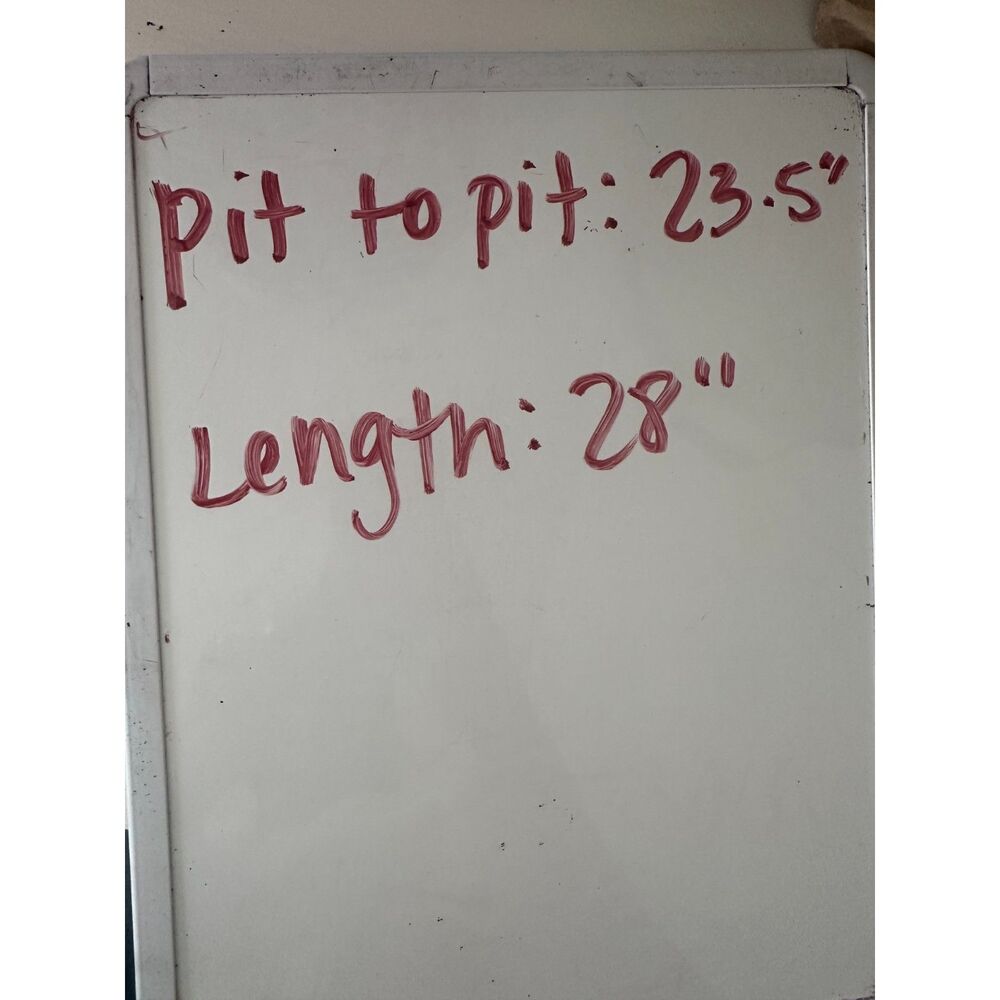 pit to pit: 23.5"
Length: 28"